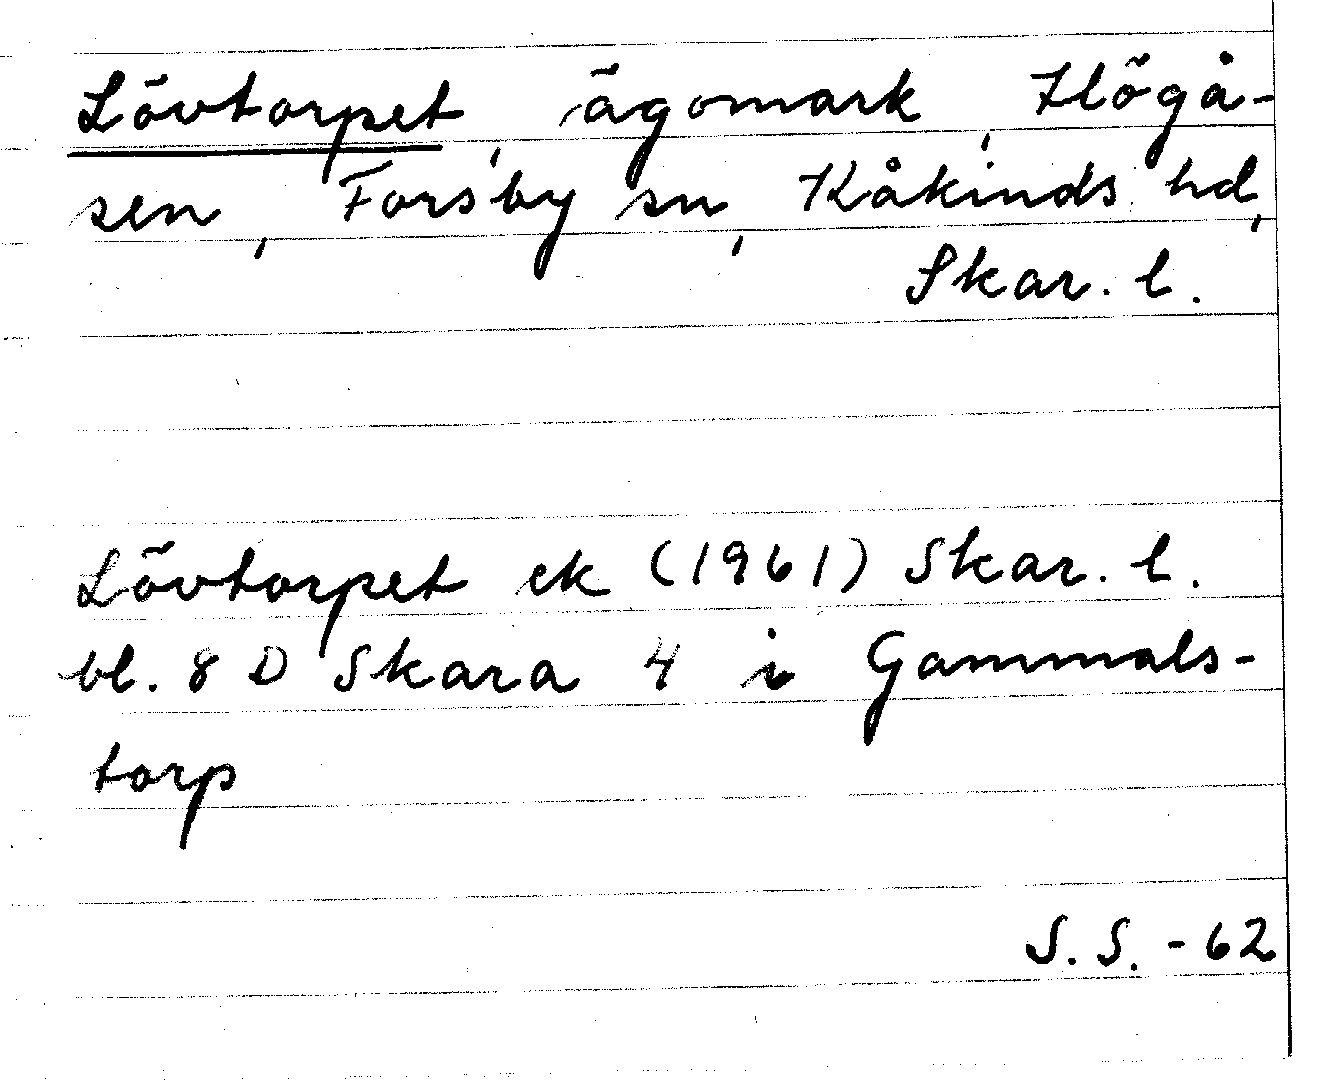 Lövtorpet, ägomark, Högå-
sen, Forsby sn, Kåkinds hd,
Skar. l.
Lövtorpet ek (1961) Skar. l.
bl. 8 D Skara 4 i Gammals-
torp
S. S. -62